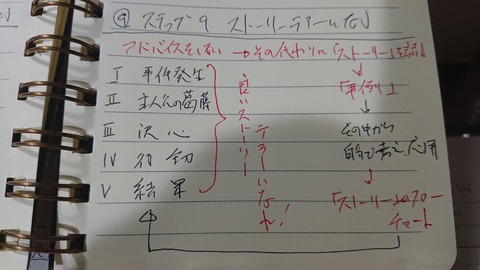 ⑨ ステップ9 ストーリーテラーになれ
アドバイスをしない → その代わりに「ストーリー」を話す
↓
「事例」
↓
その中から
自分で考え、応用
↓
「ストーリーのフローチャート
Ⅰ 事件発生
Ⅱ 主人公の葛藤
Ⅲ 決心
Ⅳ 行動
Ⅴ 結果
良いストーリー
テラーになれ!